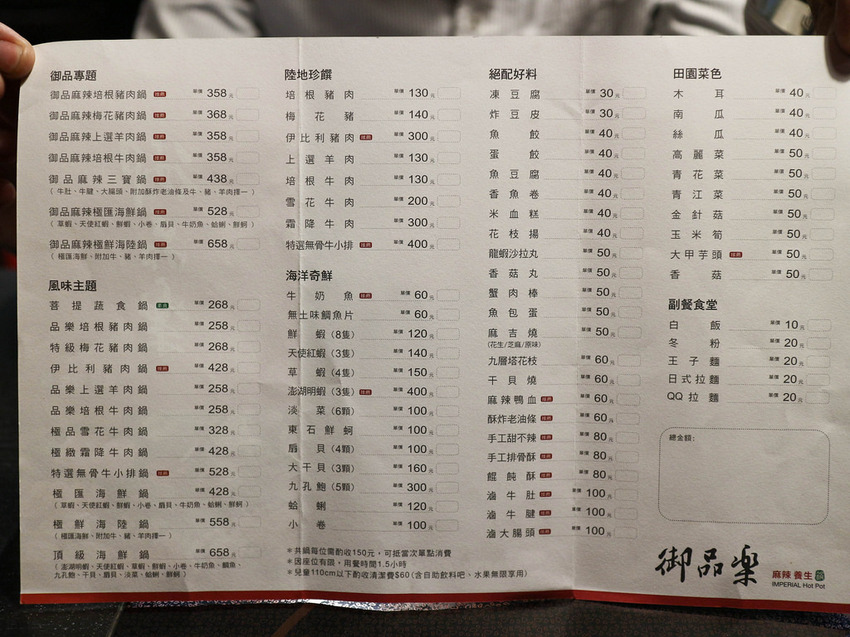 御品專題
御品麻辣培根豬肉鍋 推薦 單價 358元
御品麻辣梅花豬肉鍋 推薦 單價 368元
御品麻辣上選羊肉鍋 推薦 單價 358元
御品麻辣培根牛肉鍋 推薦 單價 358元
御品麻辣三寶鍋 推薦 單價 438元
(牛肚、牛腱、大腸頭、附加酥炸老油條及牛、豬、羊肉擇一)
御品麻辣極匯海鮮鍋 推薦 單價 528元
(草蝦、天使紅蝦、鮮蝦、小卷、扇貝、牛奶魚、蛤蜊、鮮蚵)
御品麻辣極鮮海陸鍋 推薦 單價 658元
(極匯海鮮、附加牛、豬、羊肉擇一)
風味主題
菩提蔬食鍋 素食 單價 268元
品樂培根豬肉鍋 單價 258元
特級梅花豬肉鍋 單價 268元
伊比利豬肉鍋 推薦 單價 428元
品樂上選羊肉鍋 單價 258元
品樂培根牛肉鍋 單價 258元
極品雪花牛肉鍋 單價 328元
極緻霜降牛肉鍋 單價 428元
特選無骨牛小排鍋 推薦 單價 528元
極匯海鮮鍋 單價 428元
(草蝦、天使紅蝦、鮮蝦、小卷、扇貝、牛奶魚、蛤蜊、鮮蚵)
極鮮海陸鍋 單價 558元
(極匯海鮮、附加牛、豬、羊肉擇一)
頂級海鮮鍋 單價 658元
(澎湖明蝦、天使紅蝦、草蝦、鮮蝦、小卷、牛奶魚、鯛魚、
九孔鮑、干貝、扇貝、淡菜、蛤蜊、鮮蚵)
陸地珍饌
培根豬肉 單價 130元
梅花豬 單價 140元
伊比利豬肉 推薦 單價 300元
上選羊肉 單價 130元
培根牛肉 單價 130元
雪花牛肉 單價 200元
霜降牛肉 單價 300元
特選無骨牛小排 推薦 單價 400元
海洋奇鮮
牛奶魚 推薦 單價 60元
無土味鯛魚片 單價 60元
鮮蝦(8隻) 單價 120元
天使紅蝦(3隻) 單價 140元
草蝦(4隻) 單價 150元
澎湖明蝦(3隻) 推薦 單價 400元
淡菜(6顆) 單價 100元
東石鮮蚵 單價 100元
扇貝(4顆) 單價 100元
大干貝(3顆) 單價 160元
九孔鮑(5顆) 單價 300元
蛤蜊 單價 120元
小卷 單價 100元
＊共鍋每位需酌收150元，可抵當次單點消費
＊因座位有限，用餐時間1.5小時
＊兒童110cm以下酌收清潔費$60(含自助飲料吧、水果無限享用)
絕配好料
凍豆腐 單價 30元
炸豆皮 單價 40元
魚餃 單價 40元
蛋餃 單價 40元
魚豆腐 單價 40元
香魚卷 單價 40元
米血糕 單價 40元
花枝揚 單價 40元
龍蝦沙拉丸 單價 50元
香菇丸 單價 50元
蟹肉棒 單價 50元
魚包蛋 單價 50元
麻吉燒 單價 50元
(花生/芝麻/原味)
九層塔花枝 單價 60元
干貝燒 單價 60元
麻辣鴨血 推薦 單價 60元
酥炸老油條 推薦 單價 60元
手工甜不辣 推薦 單價 80元
手工排骨酥 推薦 單價 80元
餛飩酥 推薦 單價 80元
滷牛肚 推薦 單價 100元
滷牛腱 推薦 單價 100元
滷大腸頭 推薦 單價 100元
田園菜色
木耳 單價 40元
南瓜 單價 40元
絲瓜 單價 40元
高麗菜 單價 50元
青花菜 單價 50元
青江菜 單價 50元
金針菇 單價 50元
玉米筍 單價 50元
大甲芋頭 推薦 單價 50元
香菇 單價 50元
副餐食堂
白飯 單價 10元
冬粉 單價 20元
王子麵 單價 20元
日式拉麵 單價 20元
QQ拉麵 單價 20元
總金額：
御品樂
麻辣 養生 鍋
IMPERIAL Hot Pot